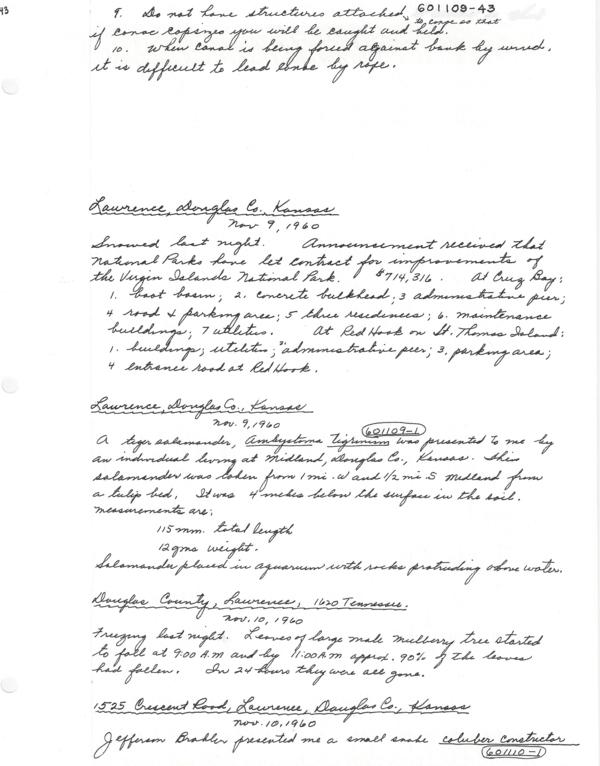 93
9. Do not have structures attached 601109-43
to canoe so that
if canoe capsizes you will be caught and held.
10. When canoe is being forced against bank by wind,
it is difficult to lead canoe by rope.
Lawrence, Douglas Co., Kansas
Nov 9, 1960
Snowed last night. Announcement received that
National Parks have let contract for improvements of
the Virgin Islands National Park. $714,316. At Cruz Bay:
1. boat basin; 2. concrete bulkhead; 3 administrative pier;
4 road & parking area; 5 three residences; 6. maintenance
buildings; 7 utilities. At Red Hook on St. Thomas Island:
1. buildings; utilities; 2 administrative pier; 3. parking area;
4 entrance road at Red Hook.
Lawrence, Douglas Co., Kansas
Nov. 9, 1960
601109-1
A tiger salamander, Ambystoma tigrinum was presented to me by
an individual living at Midland, Douglas Co., Kansas. This
salamander was taken from 1 mi. W and 1/2 mi S Midland from
a tulip bed. It was 4 inches below the surface in the soil.
Measurements are:
115 mm. total length
12 gms weight.
Salamander placed in aquarium with rocks protruding above water.
Douglas County, Lawrence, 1620 Tennessee.
Nov. 10, 1960
Freezing last night. Leaves of large male mulberry tree started
to fall at 9:00 A.M and by 11:00 A.M approx. 90% of the leaves
had fallen. In 24 hours they were all gone.
1525 Crescent Road, Lawrence, Douglas Co., Kansas
Nov. 10, 1960
Jefferson presented me a small snake coluber constructor
601110-1